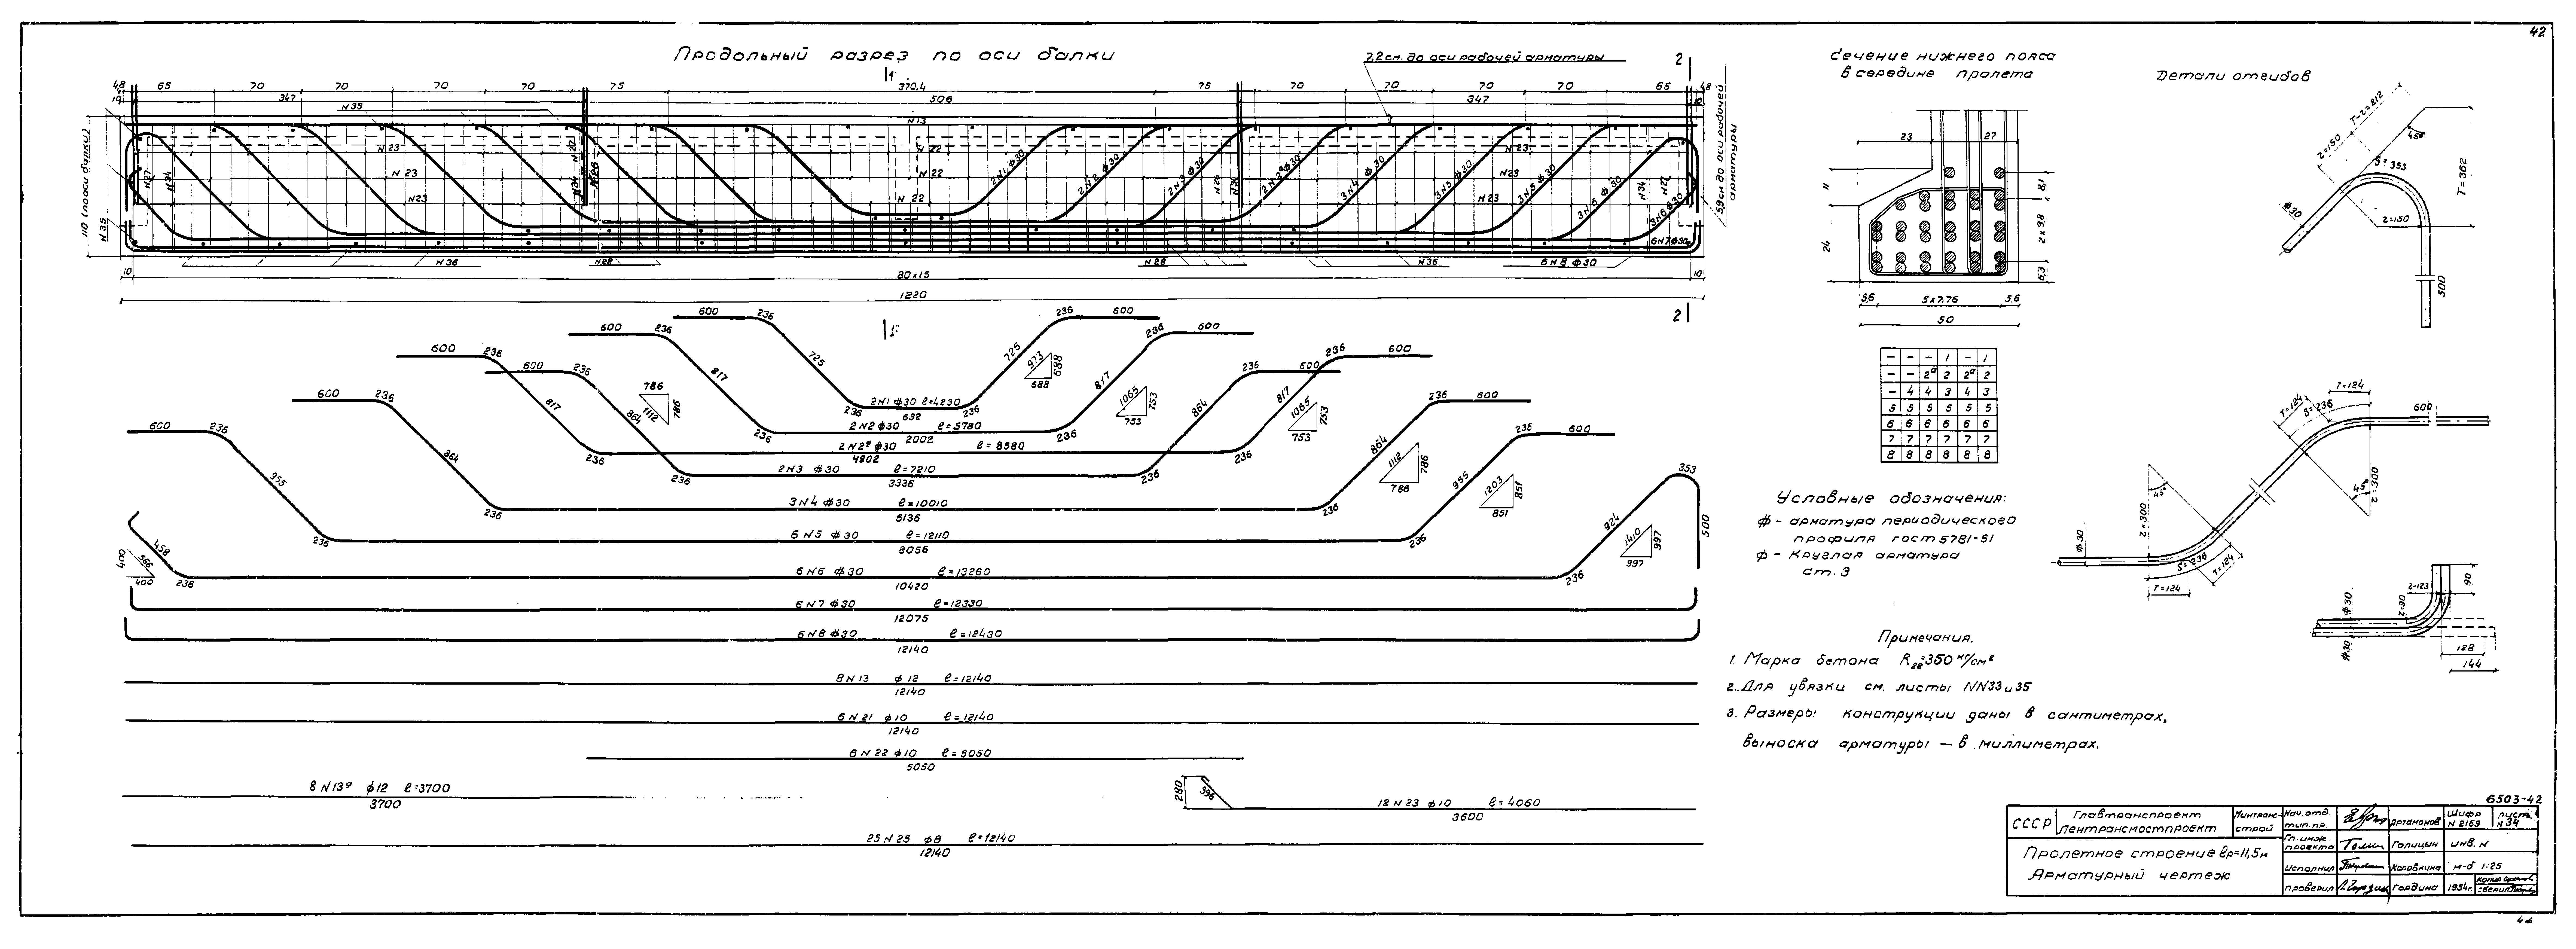 42
Продольный разрез по оси балки
7,2 см. до оси рабочей арматуры
1
2
4,8 65 70 70 70 70 75 370,4 75 70 70 70 70 65 4,8
10 347 506 347 10
N 35
N 13
110 (по оси балки)
5,9 см до оси рабочей арматуры
N 23 N 22 N 23
N 23 N 22 N 23
N 23 N 22 N 23
N 27 N 34 N 34 N 26 N 34 N 27
2N1 ф30 2N2 ф30 2N3 ф30 2N2ª ф30 3N4 ф30 3N5 ф30 3N5 ф30 3N6 ф30 3N6 ф30
N 35
6N7ф30
N 36 N 28 N 28 N 36 6N8 ф30
10 80x15 10
1220
1
2
600 236 236 600
725 725 973 688 688
2N1 ф30 ℓ=4230
236 632 236
600 236 236 600
817 817 1065 753 753
2N2 ф30 ℓ=5780
236 2002 236
600 236 236 600
817 817 1065 753 753
2N2ª ф30 ℓ=8580
236 4802 236
600 236 236 600
864 1112 786 786 864
2N3 ф30 ℓ=7210
236 3336 236
600 236 236 600
864 864 1112 786 786
3N4 ф30 ℓ=10010
236 6136 236
600 236 236 600
955 955 1203 851 851
6N5 ф30 ℓ=12110
236 8056 236
353
458 400 566 400 924 1410 997 997 500
6N6 ф30 ℓ=13260
236 10420 236
6N7 ф30 ℓ=12330
12075
6N8 ф30 ℓ=12430
12140
8N13 ф12 ℓ=12140
12140
6N21 ф10 ℓ=12140
12140
6N22 ф10 ℓ=5050
5050
8N13ª ф12 ℓ=3700
3700
280 396
12N23 ф10 ℓ=4060
3600
25N25 ф8 ℓ=12140
12140
Сечение нижнего пояса
в середине пролета
23 27
11
24
8,1
2x9,8
6,3
5,6 5x7.76 5,6
50
- - - 1 - 1
- - 2ª 2 2ª 2
- 4 4 3 4 3
5 5 5 5 5 5
6 6 6 6 6 6
7 7 7 7 7 7
8 8 8 8 8 8
Детали отгибов
T-z=212
45°
z=150
S=353
T=362
ф30
z=150
500
T=124
T=124
S=236
600
45°
z=300
45°
z=300
ф30
S=236
T=124
T=124
z=123
90
ф30
z=90
ф30
128
144
Условные обозначения:
ф - арматура периодического
профиля гост 5781-51
ф - Круглая арматура
ст. 3
Примечания.
1. Марка бетона R₂₈=350 кг/см²
2. Для увязки см. листы NN33 и 35
3. Размеры конструкции даны в сантиметрах,
выноска арматуры — в миллиметрах.
6503-42
СССР Главтранспроект Лентрансмостпроект
Минтрансстрой
Нач. отд. тип. пр. Артамонов Шифр N 2169 лист N 34
Гл. инж. проекта Голицын инв. N
Пролетное строение ℓр=11,5м
Арматурный чертеж
Исполнил Коровкина м-б 1:25
Проверил Гордина 1954г.